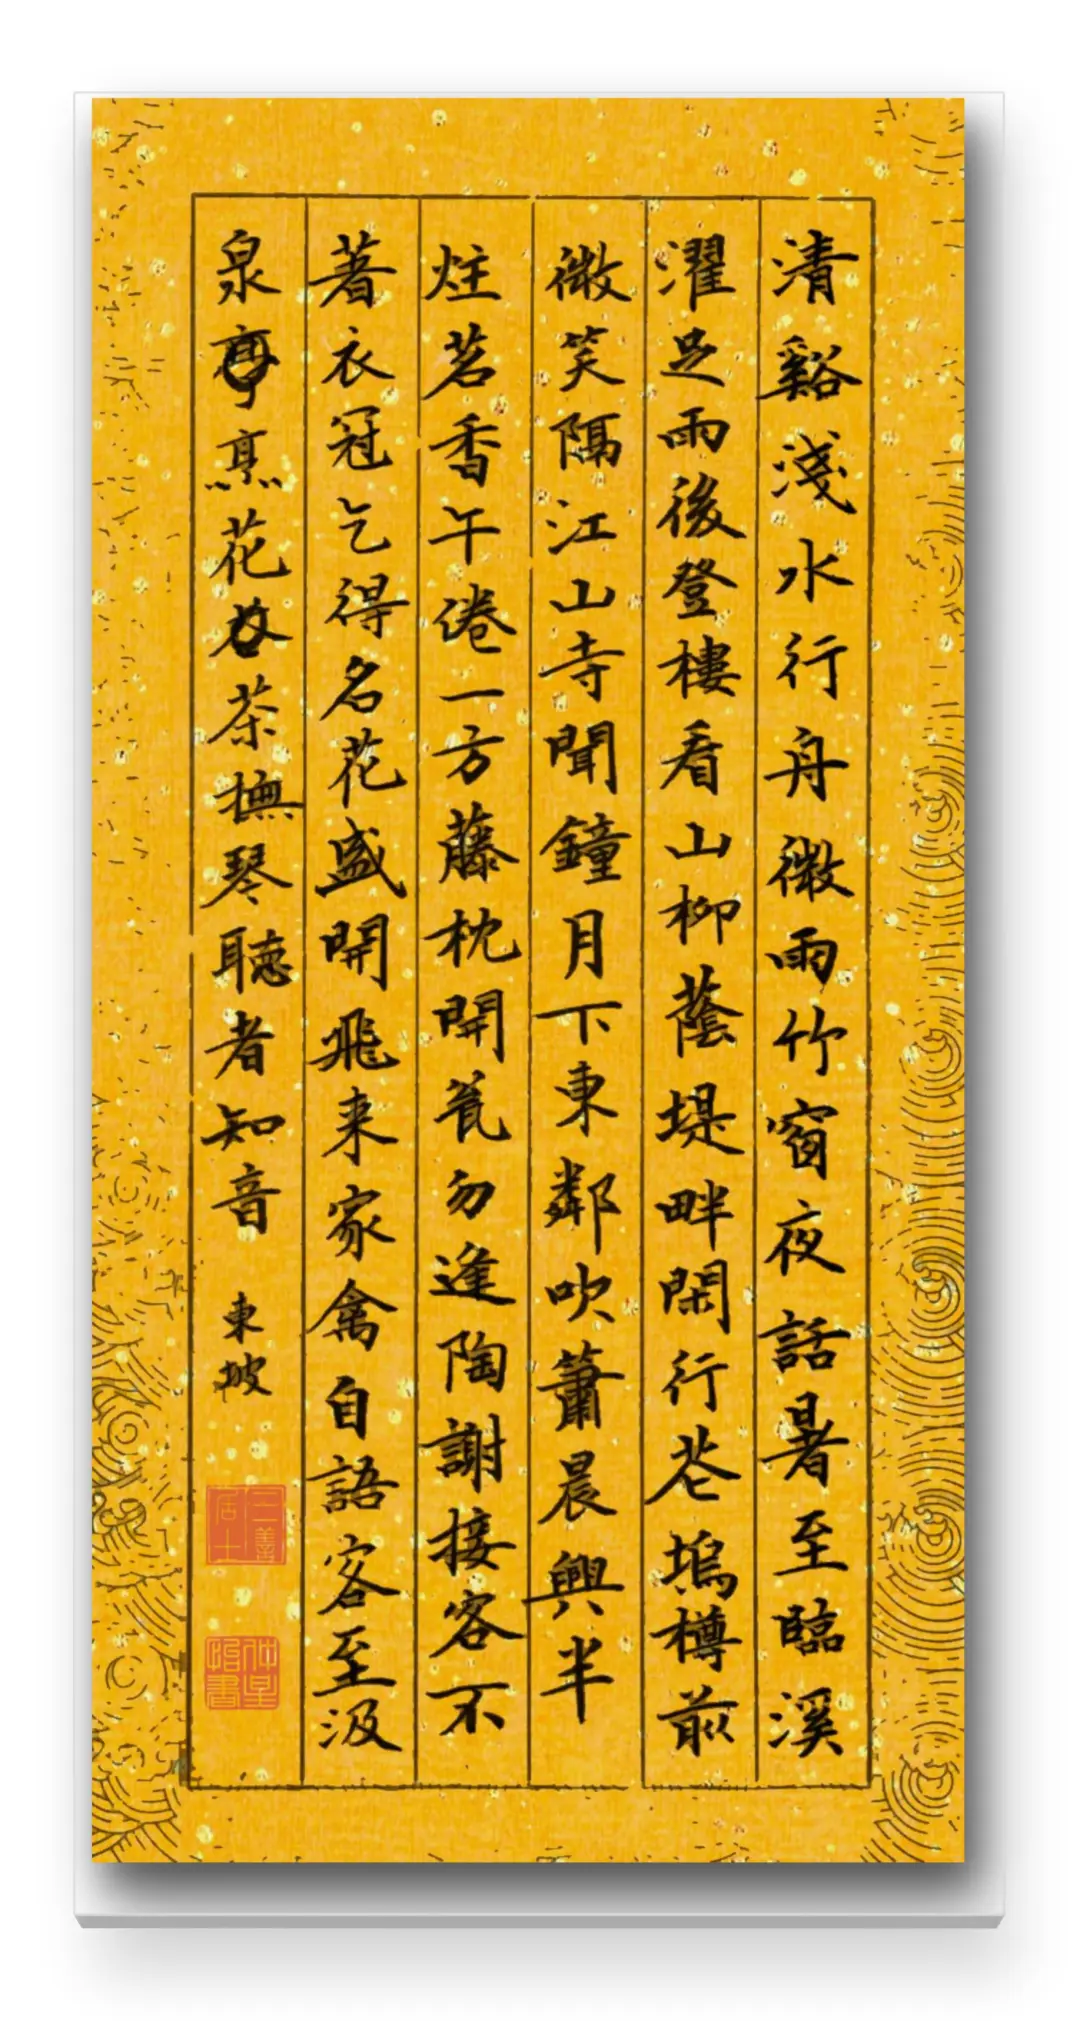 清谿淺水行舟微雨竹窗夜話暑至臨溪
濯足雨後登樓看山柳蔭堤畔閑行花塢樽前
微笑隔江山寺聞鐘月下東鄰吹簫晨興半
炷茗香午倦一方藤枕開瓮勿逢陶謝接客不
著衣冠乞得名花盛開飛来家禽自語客至汲
泉烹花茶撫琴聽者知音
東坡
三善居士